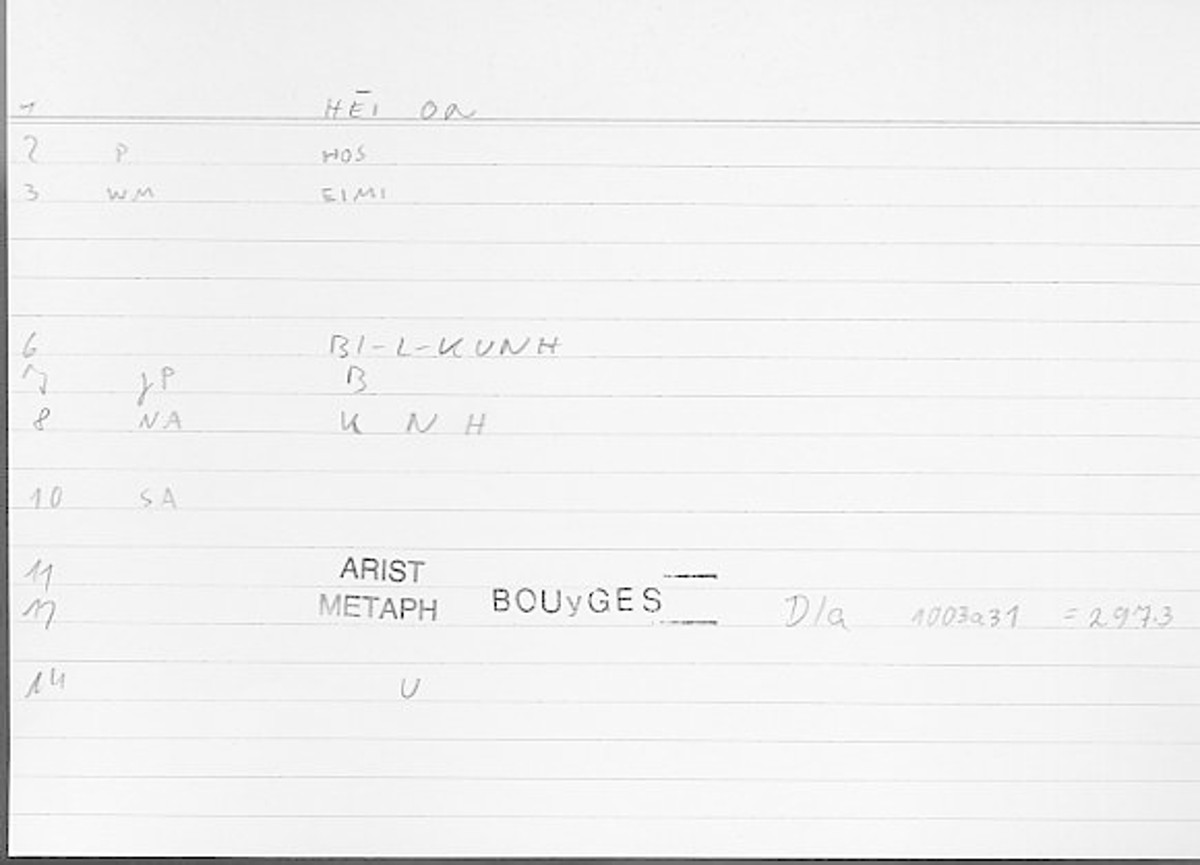 1 HĒI ON
2 P HOS
3 WM EIMI
6 BI-L-KUNH
7 jP B
8 NA K N H
10 SA
11 ARIST
12 METAPH BOUyGES D/a 1003a31 = 297.3
14 U